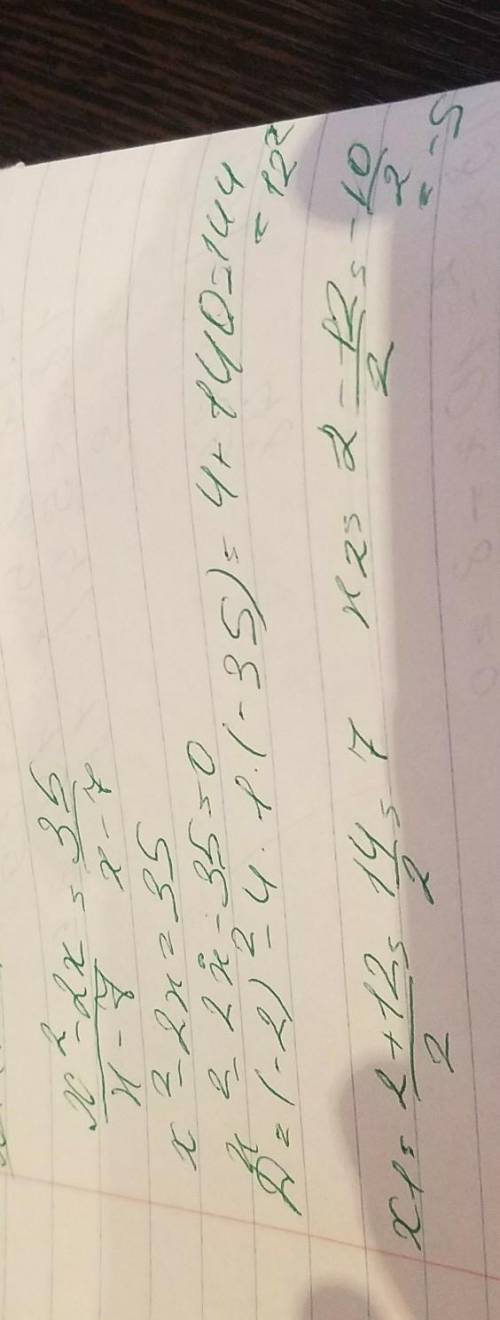 x² - 2x / x - 7 = 35 / x - 7
x² - 2x = 35
x² - 2x - 35 = 0
D = (-2)² - 4 · 1 · (-35) = 4 + 140 = 144
= 12²
x1 = 2 + 12 / 2 = 14 / 2 = 7 x2 = 2 - 12 / 2 = -10 / 2
= -5